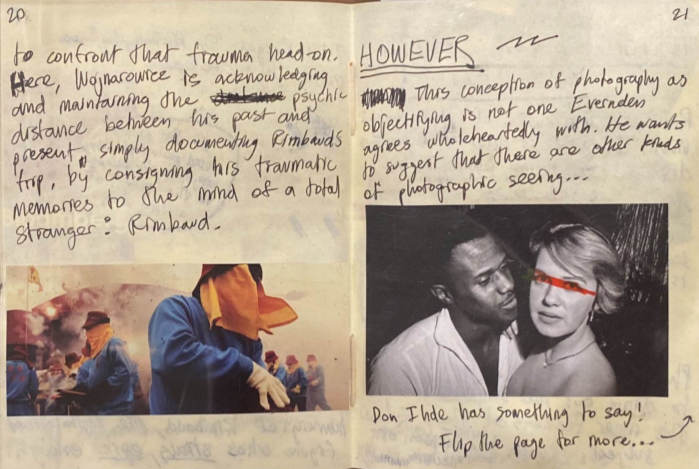 20
to confront that trauma head-on.
Here, Wojnarowicz is acknowledging
and maintaining the psychic
distance between his past and
present, simply documenting Rimbauds
trip, by consigning his traumatic
memories to the mind of a total
stranger: Rimbaud.
21
HOWEVER
This conception of photography as
objectifying is not one Evernden
agrees wholeheartedly with. He wants
to suggest that there are other kinds
of photographic seeing...
Don Ihde has something to say!
Flip the page for more...